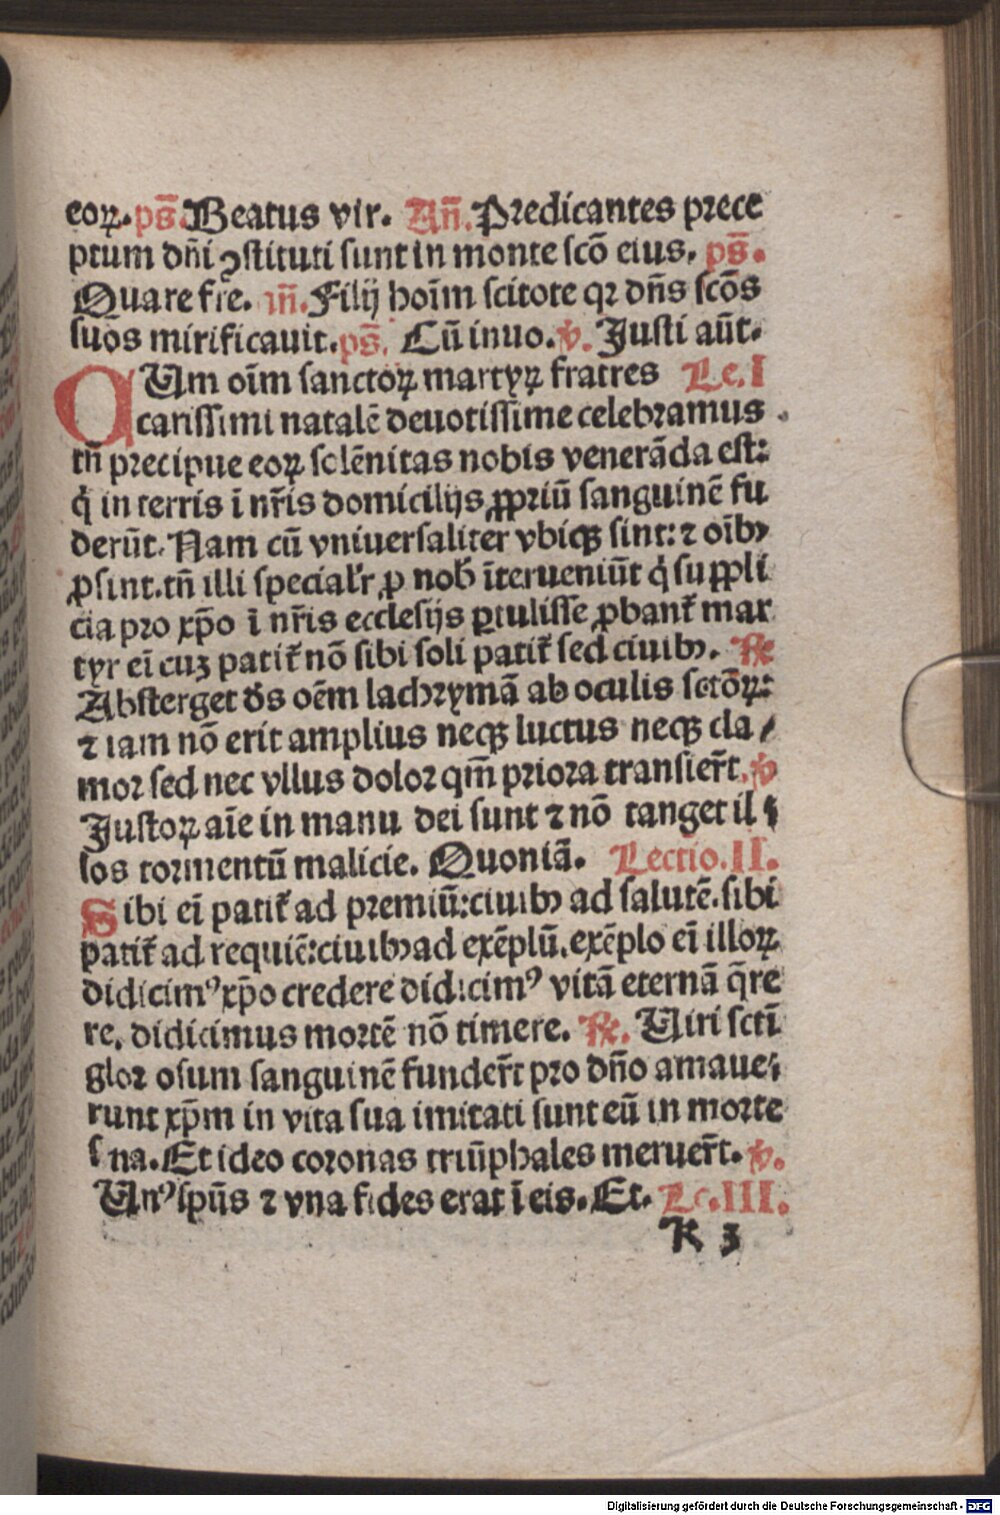 eoꝝ. ps̄. Beatus vir. An̄. Predicantes prece
ptum dn̄i ꝯstituti sunt in monte scō eius. ps̄.
Quare fre. an̄. Filij hoīm scitote qꝛ dn̄s scōs
suos mirificauit. ps̄. Cū inuo. ℣. Justi aūt.
QUm oīm sanctoꝝ martyꝝ fratres Le. I
carissimi natalē deuotissime celebramus
tn̄ precipue eoꝝ solēnitas nobis venerāda est:
q̇ in terris ī nr̄is domicilijs ꝓpriū sanguinē fu
derūt. Nam cū vniuersaliter vbiqꝫ sint: ⁊ oībꝰ
ꝓsint. tn̄ illi specialr̄ ꝓ nob̄ īterueniūt q̇ suppli
cia pro xp̄o ī nr̄is ecclesijs ꝑtulisse ꝓbant᷑ mar
tyr eī cuꝫ patit᷑ nō sibi soli patit᷑ sed ciuibꝰ. ℟
Absterget ds̄ oēm lachrymā ab oculis sctōꝝ:
⁊ iam nō erit amplius neqꝫ luctus neqꝫ cla /
mor sed nec vllus dolor qm̄ priora transier̄t. ℣
Justoꝝ aīe in manu dei sunt ⁊ nō tanget il
los tormentū malicie. Quoniā. Lectio. II.
Sibi eī patit᷑ ad premiū: ciuibꝰ ad salutē. sibi
patit᷑ ad requiē: ciuibꝰ ad exēplū. exēplo eī illoꝝ
didicimꝰ xp̄o credere didicimꝰ vitā eternā q̄re
re. didicimus mortē nō timere. ℟. Uiri sctī
glor osum sanguinē funder̄t pro dn̄o amaue
runt xp̄m in vita sua imitati sunt eū in morte
sua. Et ideo coronas triūphales meruer̄t. ℣.
Unꝰ spūs ⁊ vna fides erat ī eis. Et. Le. III.
K 3
Digitalisierung gefördert durch die Deutsche Forschungsgemeinschaft - DFG